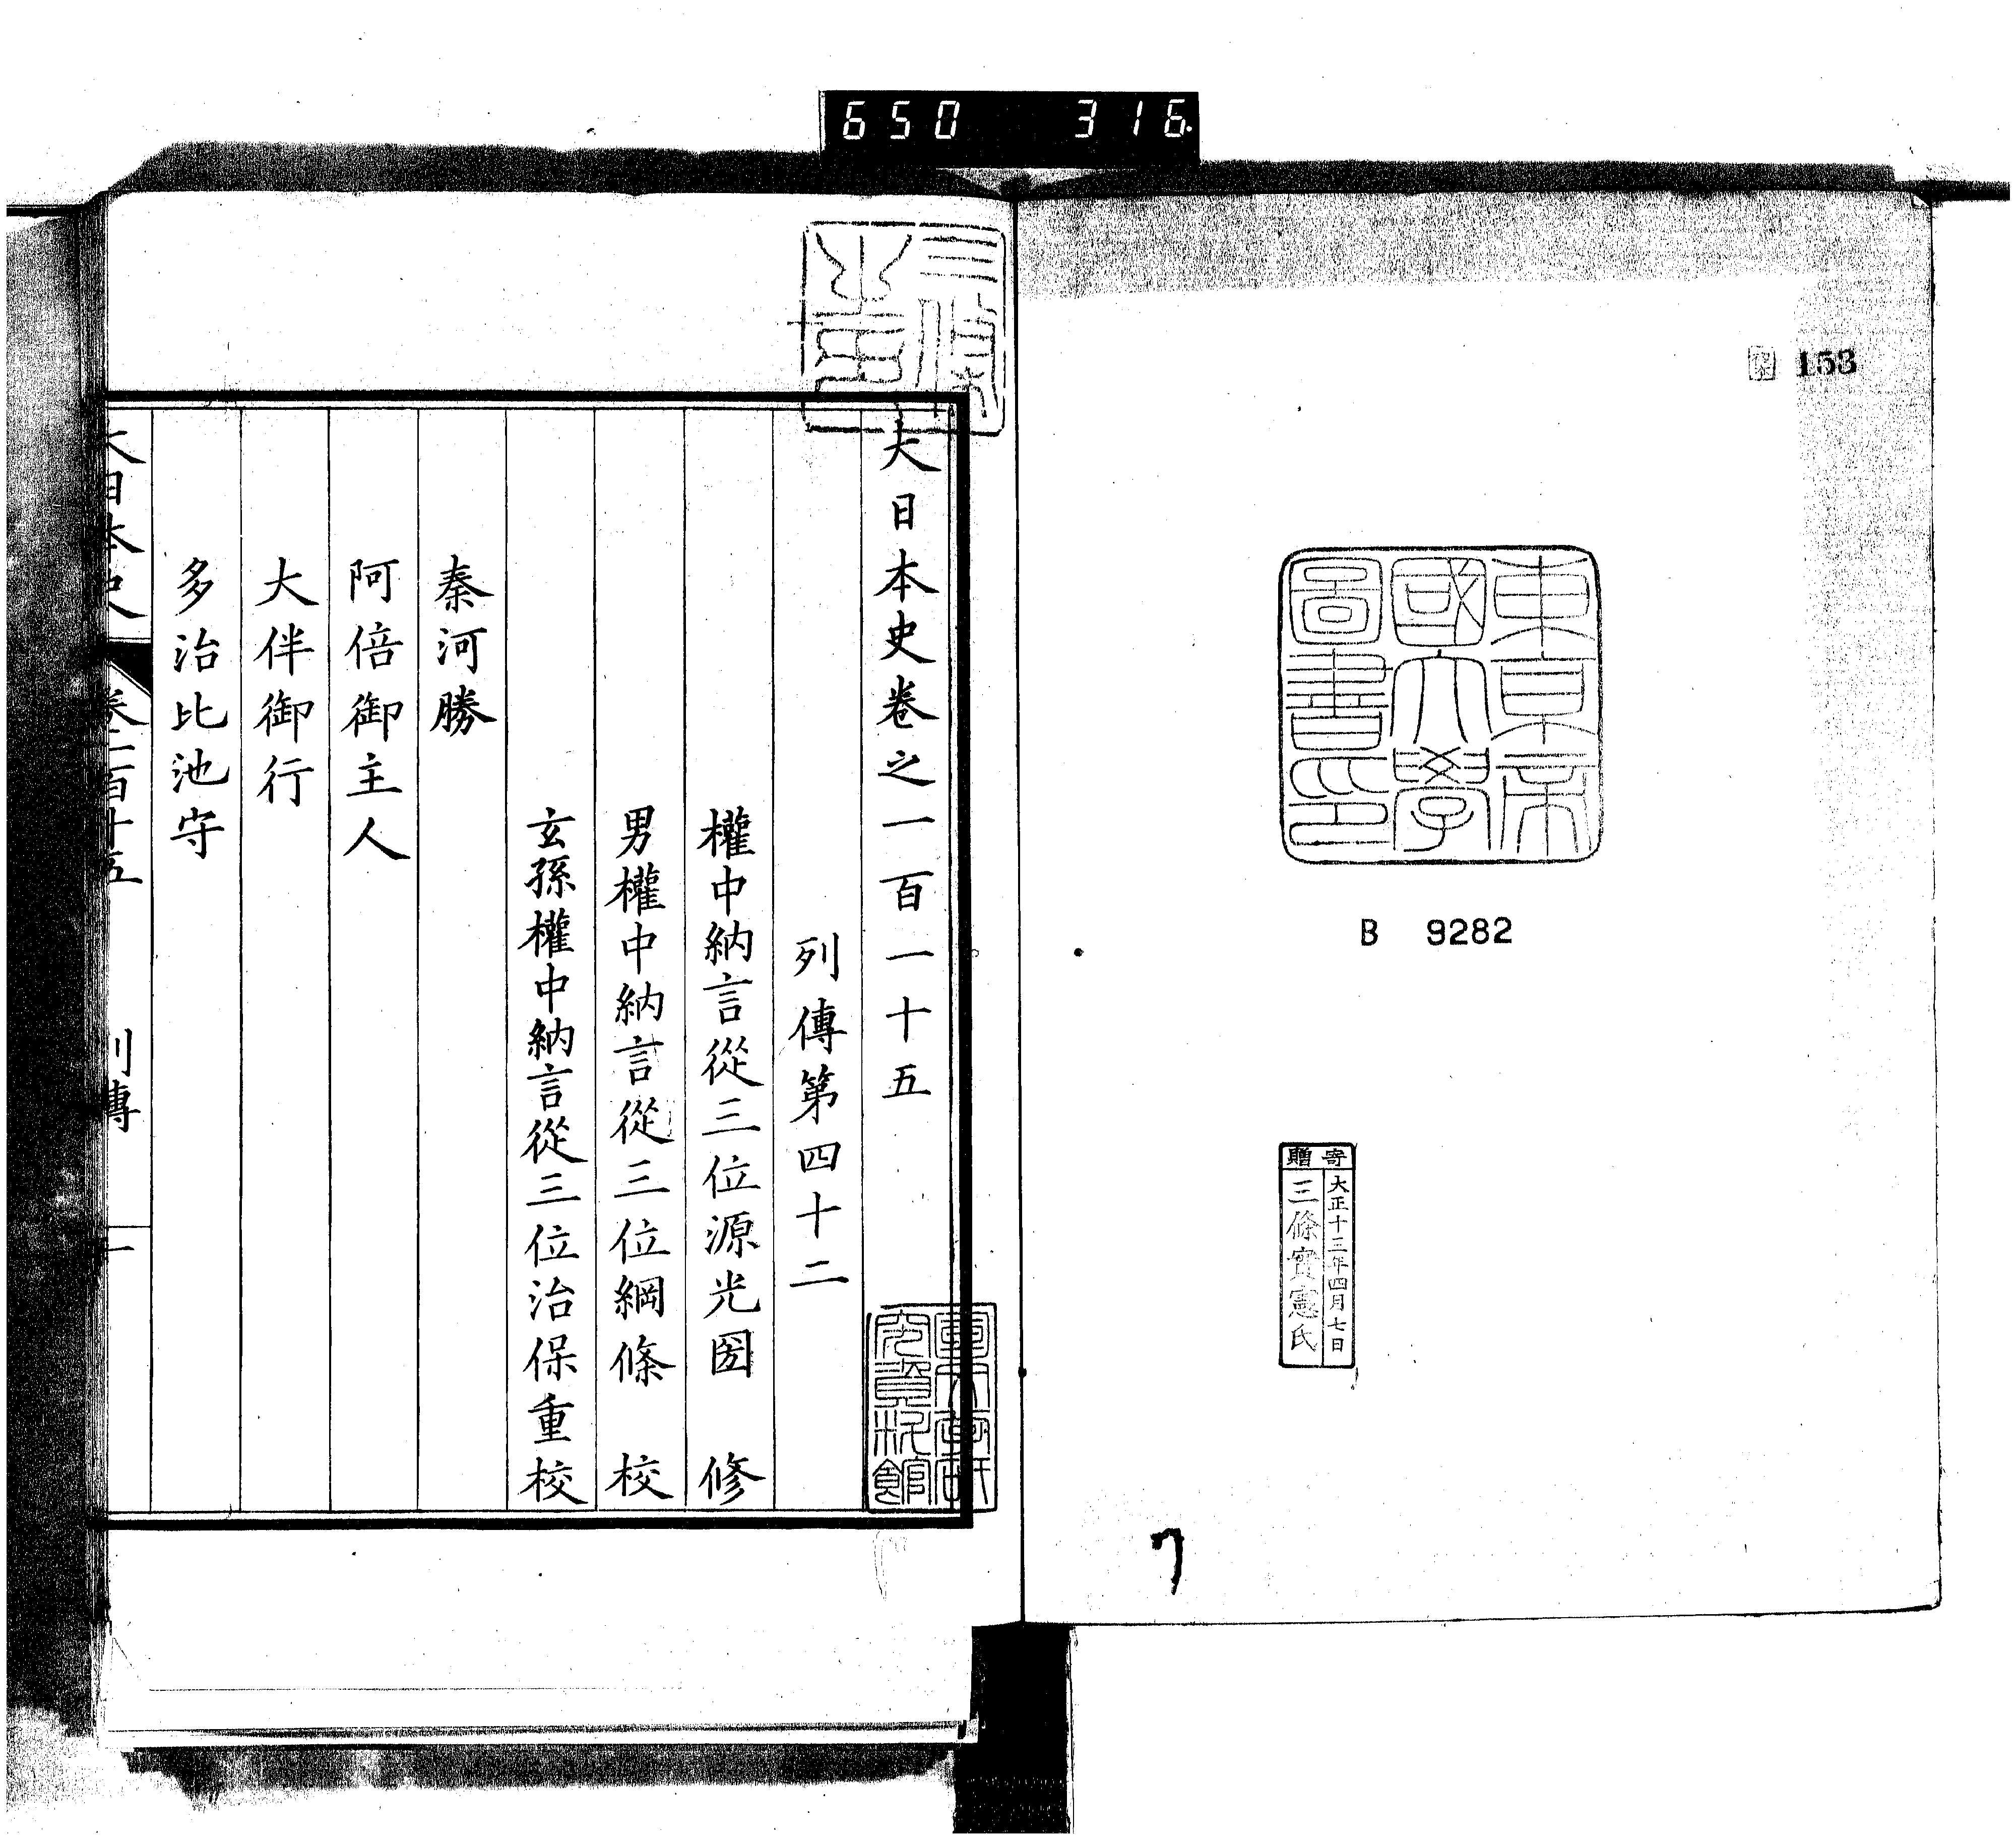 650 316
153
東京帝
國大學
圖書印
B 9282
寄贈
大正十三年四月七日
三條實憲氏
7
大日本史卷之一百一十五
列傳第四十二
權中納言從三位源光圀 修
男權中納言從三位綱條 校
玄孫權中納言從三位治保重校
秦河勝
阿倍御主人
大伴御行
多治比池守
大日本史 卷一百十五 列傳 一